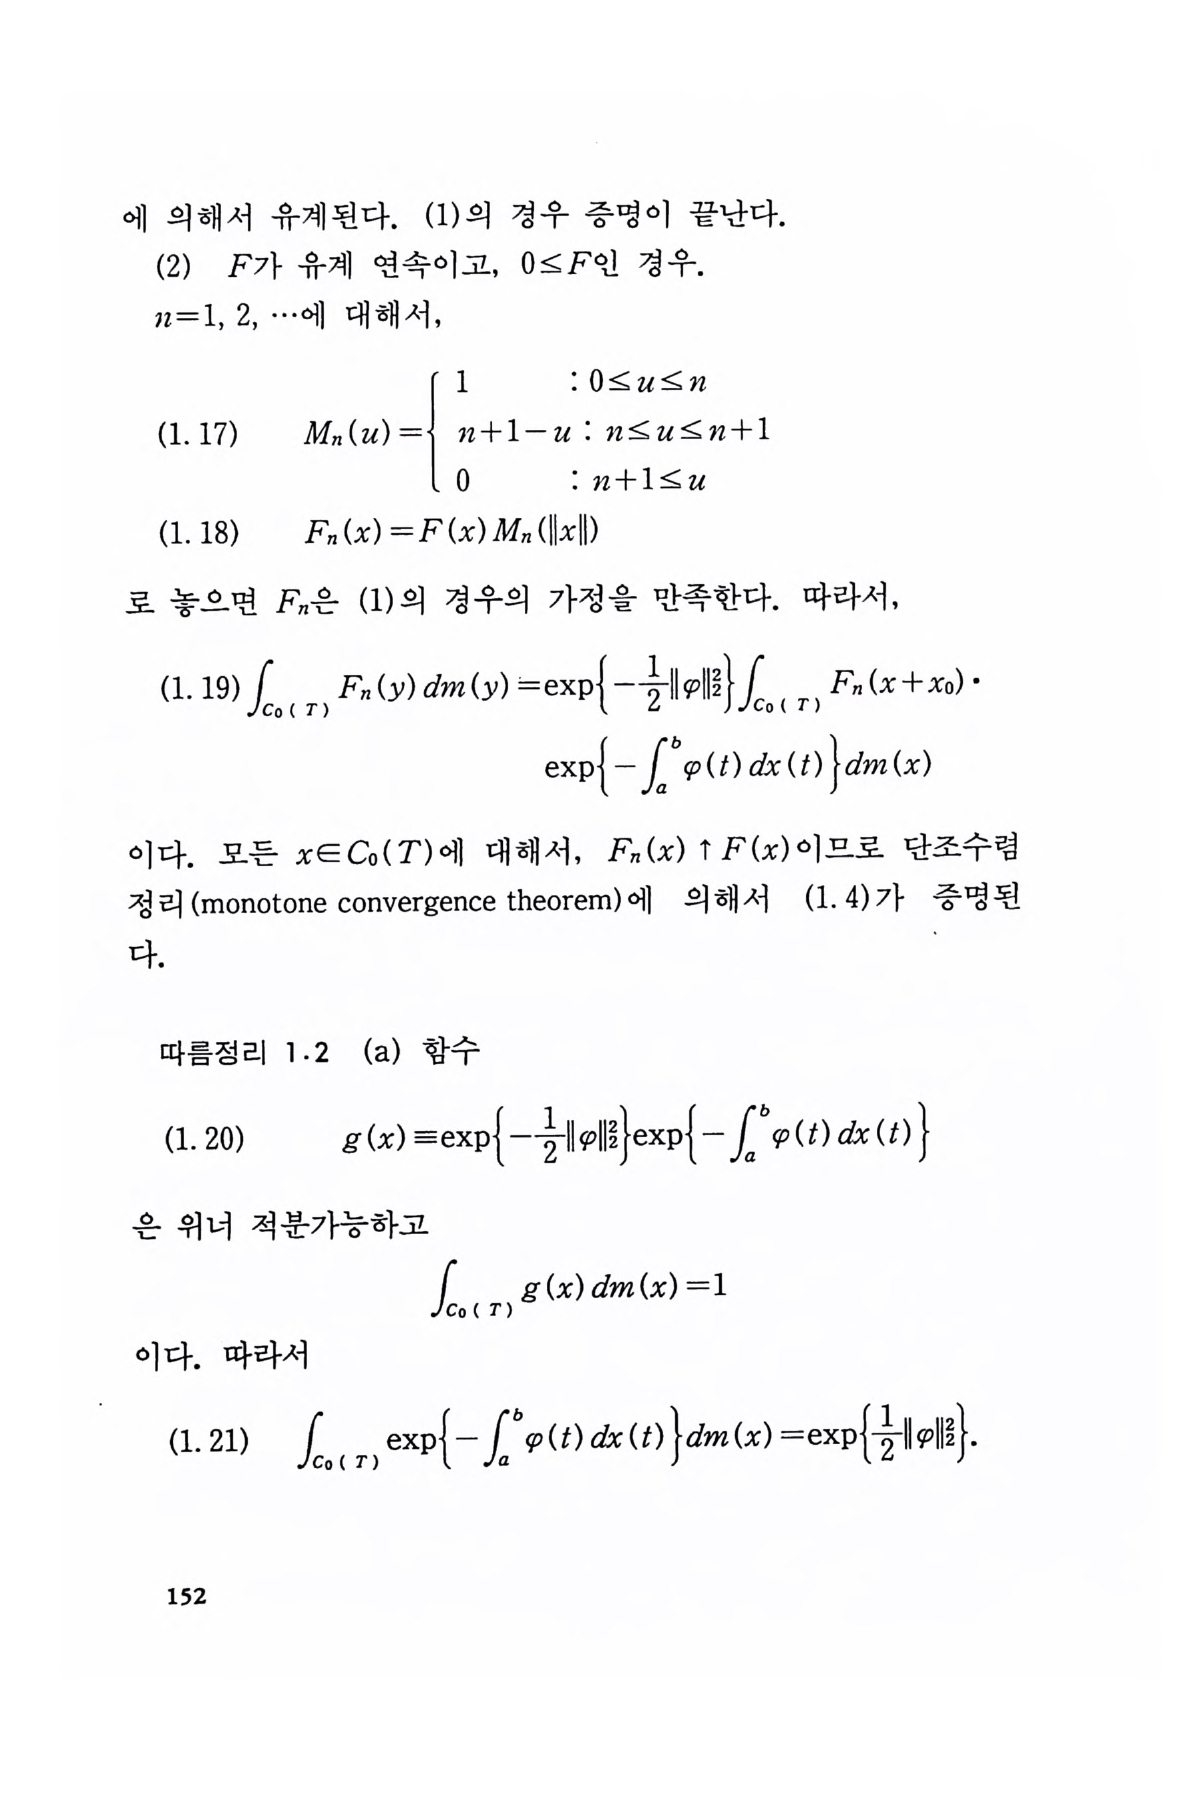 에 의해서 유계된다. (1)의 경우 증명이 끝난다.
(2) F가 유계 연속이고, 0≤F인 경우.
n=1, 2, …에 대해서,
(1. 17) Mₙ(u)={ 1 : 0≤u≤n
n+1−u : n≤u≤n+1
0 : n+1≤u
(1. 18) Fₙ(x)=F(x)Mₙ(‖x‖)
로 놓으면 Fₙ은 (1)의 경우의 가정을 만족한다. 따라서,
(1. 19) ∫_{C₀(T)} Fₙ(y) dm(y)=exp{−1/2‖φ‖₂²}∫_{C₀(T)} Fₙ(x+x₀)·
exp{−∫ₐᵇφ(t) dx(t)}dm(x)
이다. 모든 x∈C₀(T)에 대해서, Fₙ(x)↑F(x)이므로 단조수렴
정리(monotone convergence theorem)에 의해서 (1. 4)가 증명된
다.
따름정리 1.2 (a) 함수
(1. 20) g(x)≡exp{−1/2‖φ‖₂²}exp{−∫ₐᵇφ(t) dx(t)}
은 위너 적분가능하고
∫_{C₀(T)} g(x) dm(x)=1
이다. 따라서
(1. 21) ∫_{C₀(T)} exp{−∫ₐᵇφ(t) dx(t)}dm(x)=exp{1/2‖φ‖₂²}.
152